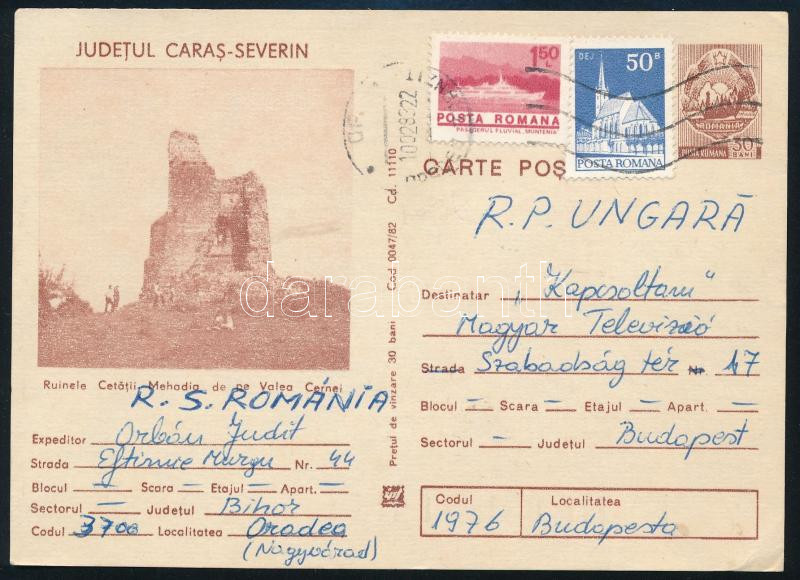 JUDEȚUL CARAȘ-SEVERIN
Ruinele Cetății Mehadia de pe Valea Cernei
R. S. ROMÁNIA
Expeditor Orbán Judit
Strada Eftimie Murgu Nr. 44
Blocul — Scara — Etajul — Apart. —
Sectorul — Județul Bihor
Codul 3700 Localitatea Oradea
(Nagyvárad)
Prețul de vînzare 30 bani Cod 0047/82 Cd. 11110
1.50 L
POSTA ROMANA
PASAGERUL FLUVIAL „MUNTENIA"
DEJ 50 B
POSTA ROMANA
ROMANIA
POSTA ROMANA 30 BANI
10028322
CARTE POȘ
R.P. UNGARĂ
Destinatar „Kapcsoltam"
Magyar Televizió
Strada Szabadság tér Nr. 17
Blocul — Scara — Etajul — Apart. —
Sectorul — Județul Budapest
Codul Localitatea
1976 Budapesta
darabanth